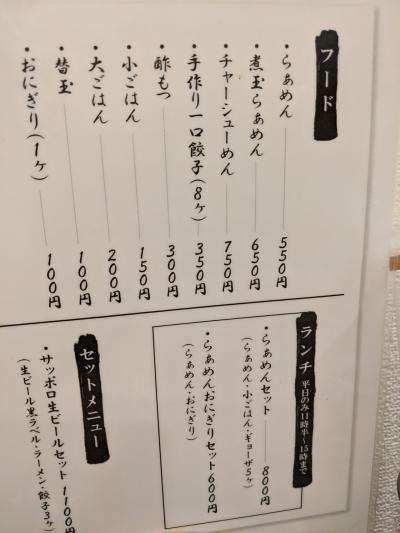 フード
・らぁめん 550円
・煮玉らぁめん 650円
・チャーシューめん 750円
・手作り一口餃子(8ヶ) 350円
・酢もつ 300円
・小ごはん 150円
・大ごはん 200円
・替玉 100円
・おにぎり(1ヶ) 100円
ランチ 平日のみ11時半~15時まで
・らぁめんセット 800円
(らぁめん・小ごはん・ギョーザ5ヶ)
・らぁめんおにぎりセット 600円
(らぁめん・おにぎり)
セットメニュー
・サッポロ生ビールセット 1100円
(生ビール黒ラベル・ラーメン・餃子3ヶ)